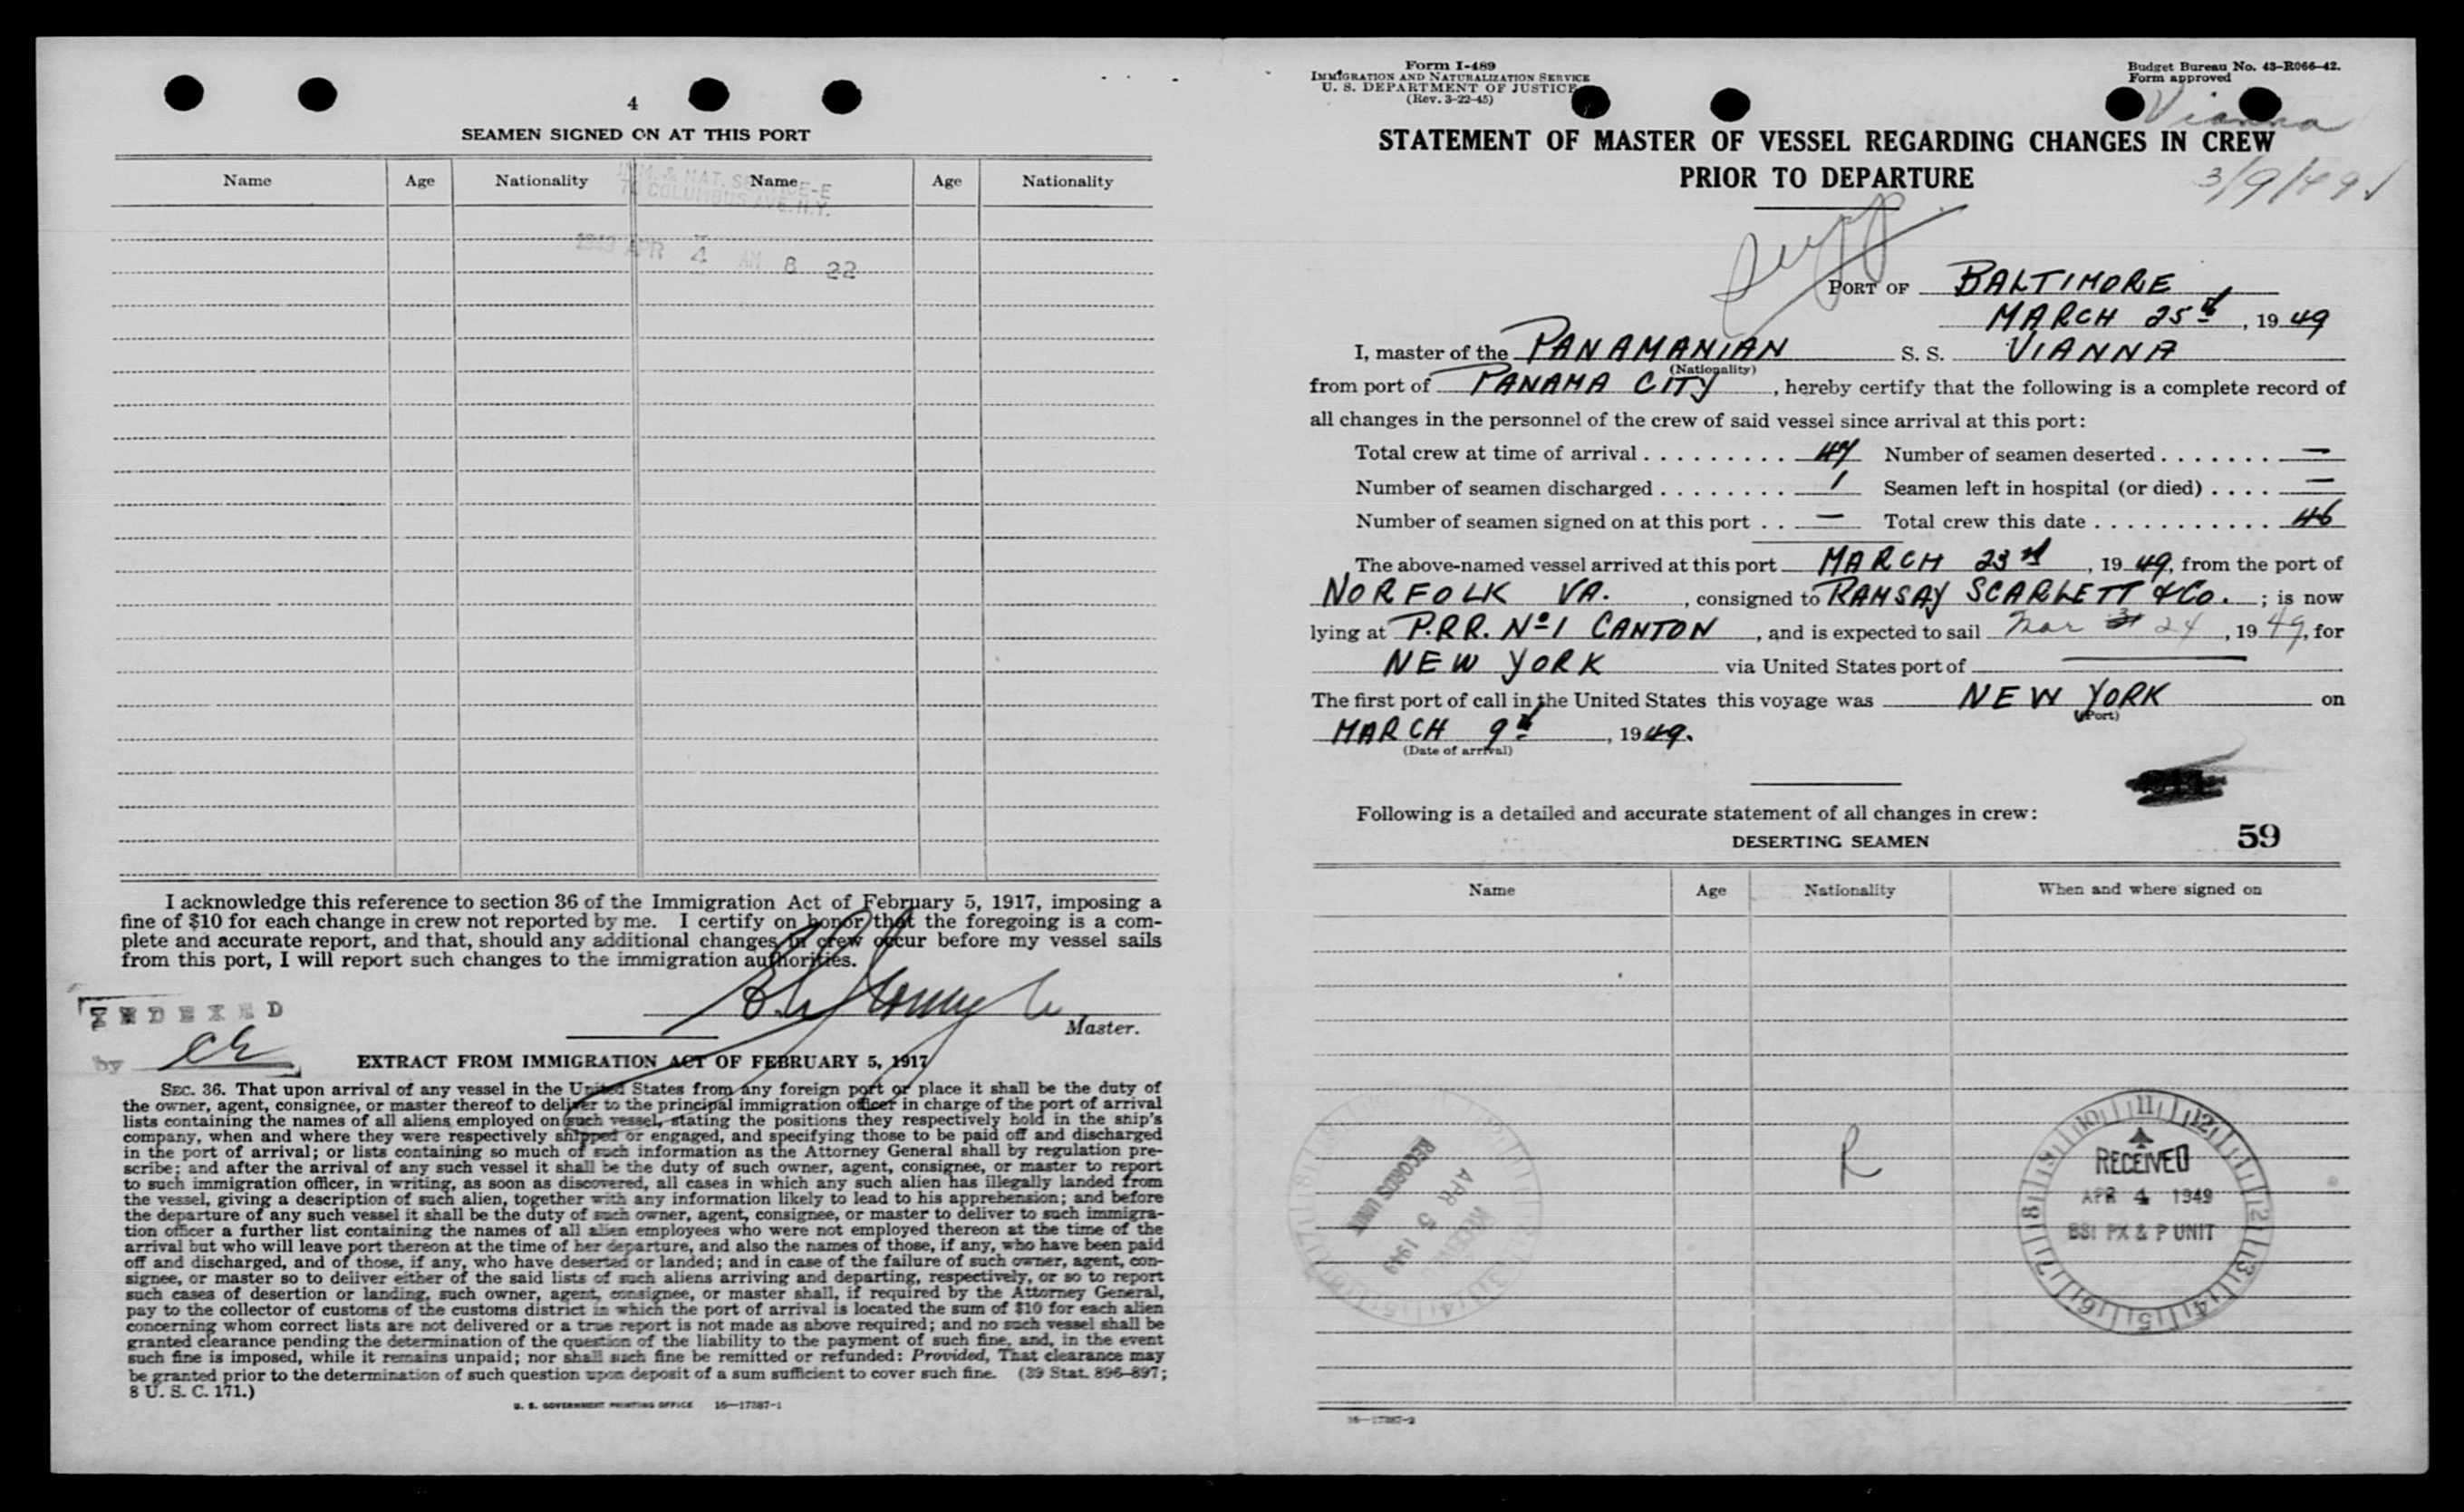 4
SEAMEN SIGNED ON AT THIS PORT
Name Age Nationality Name Age Nationality
IMM. & NAT. SERVICE-E
70 COLUMBUS AVE. N.Y.
1949 APR 4 AM 8 22
I acknowledge this reference to section 36 of the Immigration Act of February 5, 1917, imposing a
fine of $10 for each change in crew not reported by me. I certify on honor that the foregoing is a com-
plete and accurate report, and that, should any additional changes in crew occur before my vessel sails
from this port, I will report such changes to the immigration authorities.
Master.
INDEXED
by CE
EXTRACT FROM IMMIGRATION ACT OF FEBRUARY 5, 1917
SEC. 36. That upon arrival of any vessel in the United States from any foreign port or place it shall be the duty of
the owner, agent, consignee, or master thereof to deliver to the principal immigration officer in charge of the port of arrival
lists containing the names of all aliens employed on such vessel, stating the positions they respectively hold in the ship's
company, when and where they were respectively shipped or engaged, and specifying those to be paid off and discharged
in the port of arrival; or lists containing so much of such information as the Attorney General shall by regulation pre-
scribe; and after the arrival of any such vessel it shall be the duty of such owner, agent, consignee, or master to report
to such immigration officer, in writing, as soon as discovered, all cases in which any such alien has illegally landed from
the vessel, giving a description of such alien, together with any information likely to lead to his apprehension; and before
the departure of any such vessel it shall be the duty of such owner, agent, consignee, or master to deliver to such immigra-
tion officer a further list containing the names of all alien employees who were not employed thereon at the time of the
arrival but who will leave port thereon at the time of her departure, and also the names of those, if any, who have been paid
off and discharged, and of those, if any, who have deserted or landed; and in case of the failure of such owner, agent, con-
signee, or master so to deliver either of the said lists of such aliens arriving and departing, respectively, or so to report
such cases of desertion or landing, such owner, agent, consignee, or master shall, if required by the Attorney General,
pay to the collector of customs of the customs district in which the port of arrival is located the sum of $10 for each alien
concerning whom correct lists are not delivered or a true report is not made as above required; and no such vessel shall be
granted clearance pending the determination of the question of the liability to the payment of such fine, and, in the event
such fine is imposed, while it remains unpaid; nor shall such fine be remitted or refunded: Provided, That clearance may
be granted prior to the determination of such question upon deposit of a sum sufficient to cover such fine. (39 Stat. 896-897;
8 U. S. C. 171.)
U. S. GOVERNMENT PRINTING OFFICE 16—17387-1
Form I-489
IMMIGRATION AND NATURALIZATION SERVICE
U. S. DEPARTMENT OF JUSTICE
(Rev. 3-22-45)
Budget Bureau No. 43-R066-42.
Form approved
Vianna
STATEMENT OF MASTER OF VESSEL REGARDING CHANGES IN CREW
PRIOR TO DEPARTURE
3/9/49
Supp
PORT OF BALTIMORE
MARCH 25th, 1949
I, master of the PANAMANIAN S. S. VIANNA
(Nationality)
from port of PANAMA CITY, hereby certify that the following is a complete record of
all changes in the personnel of the crew of said vessel since arrival at this port:
Total crew at time of arrival . . . . . . . . . . 47 Number of seamen deserted . . . . . . . —
Number of seamen discharged . . . . . . . . 1 Seamen left in hospital (or died) . . . . —
Number of seamen signed on at this port . . — Total crew this date . . . . . . . . . . . . 46
The above-named vessel arrived at this port MARCH 23rd, 1949, from the port of
NORFOLK VA., consigned to RAMSAY SCARLETT & Co.; is now
lying at P.R.R. No 1 CANTON, and is expected to sail Mar 24, 1949, for
NEW YORK via United States port of —
The first port of call in the United States this voyage was NEW YORK on
(Port)
MARCH 9th, 1949.
(Date of arrival)
Following is a detailed and accurate statement of all changes in crew:
DESERTING SEAMEN 59
Name Age Nationality When and where signed on
R
RECORDS UNIT
APR 5 1949
RECEIVED
APR 4 1949
BSI PX & P UNIT
16—17387-2